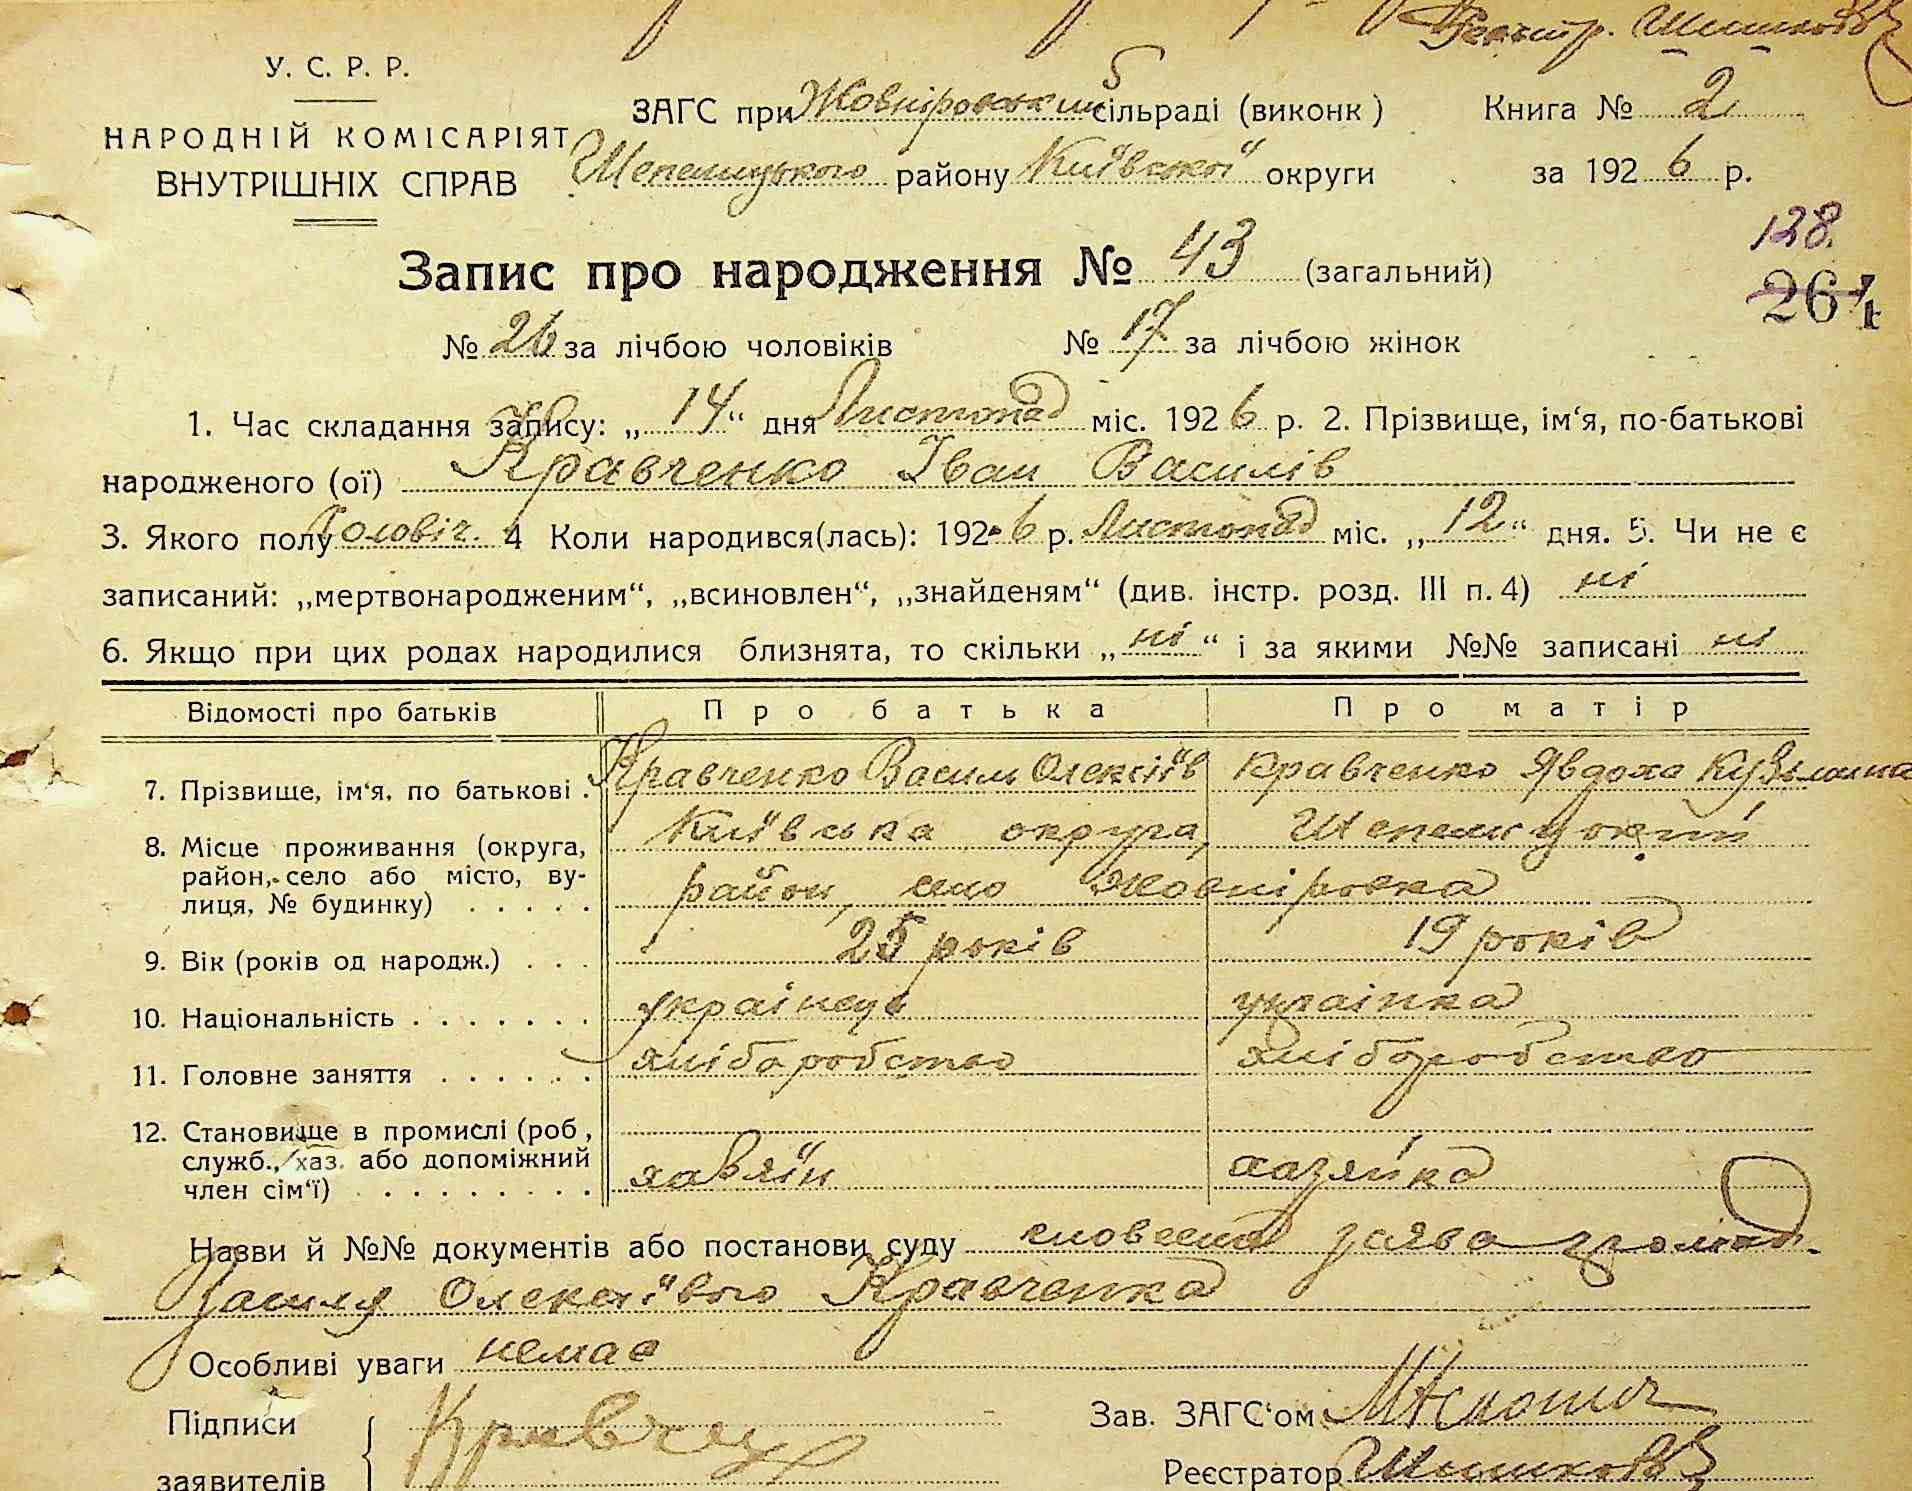 Реєстр. Шишковъ
У. С. Р. Р.
НАРОДНІЙ КОМІСАРІЯТ
ВНУТРІШНІХ СПРАВ
ЗАГС при Жовніровській сільраді (виконк) Книга № 2
Шепелицького району Київської округи за 1926 р.
128.
264
Запис про народження № 43 (загальний)
№ 26 за лічбою чоловіків № 17 за лічбою жінок
1. Час складання запису: „14“ дня Листопад міс. 1926 р. 2. Прізвище, ім‘я, по-батькові
народженого (ої) Кравченко Іван Василів
3. Якого полу Чоловіч. 4 Коли народився(лась): 1926 р. Листопад міс. „12“ дня. 5. Чи не є
записаний: „мертвонародженим“, „всиновлен“, „знайденям“ (див. інстр. розд. III п. 4) ні
6. Якщо при цих родах народилися близнята, то скільки „ні“ і за якими №№ записані ні
Відомості про батьків Про батька Про матір
7. Прізвище, ім‘я, по батькові . Кравченко Василь Олексіїв Кравченко Явдоха Кузьмина
8. Місце проживання (округа, Київська округа, Шепелицький
район, село або місто, ву- район, село Жовніровка
лиця, № будинку) . . . . .
9. Вік (років од народж.) . . . 25 років 19 років
10. Національність . . . . . . . українець українка
11. Головне заняття . . . . . . хліборобство хліборобство
12. Становище в промислі (роб,
служб., хаз. або допоміжний
член сім‘ї) . . . . . . . . . хазяїн хазяйка
Назви й №№ документів або постанови суду словесна заява громад.
Василя Олексієвого Кравченка
Особливі уваги немає
Підписи Зав. ЗАГС‘ом
заявителів Реєстратор Шишковъ